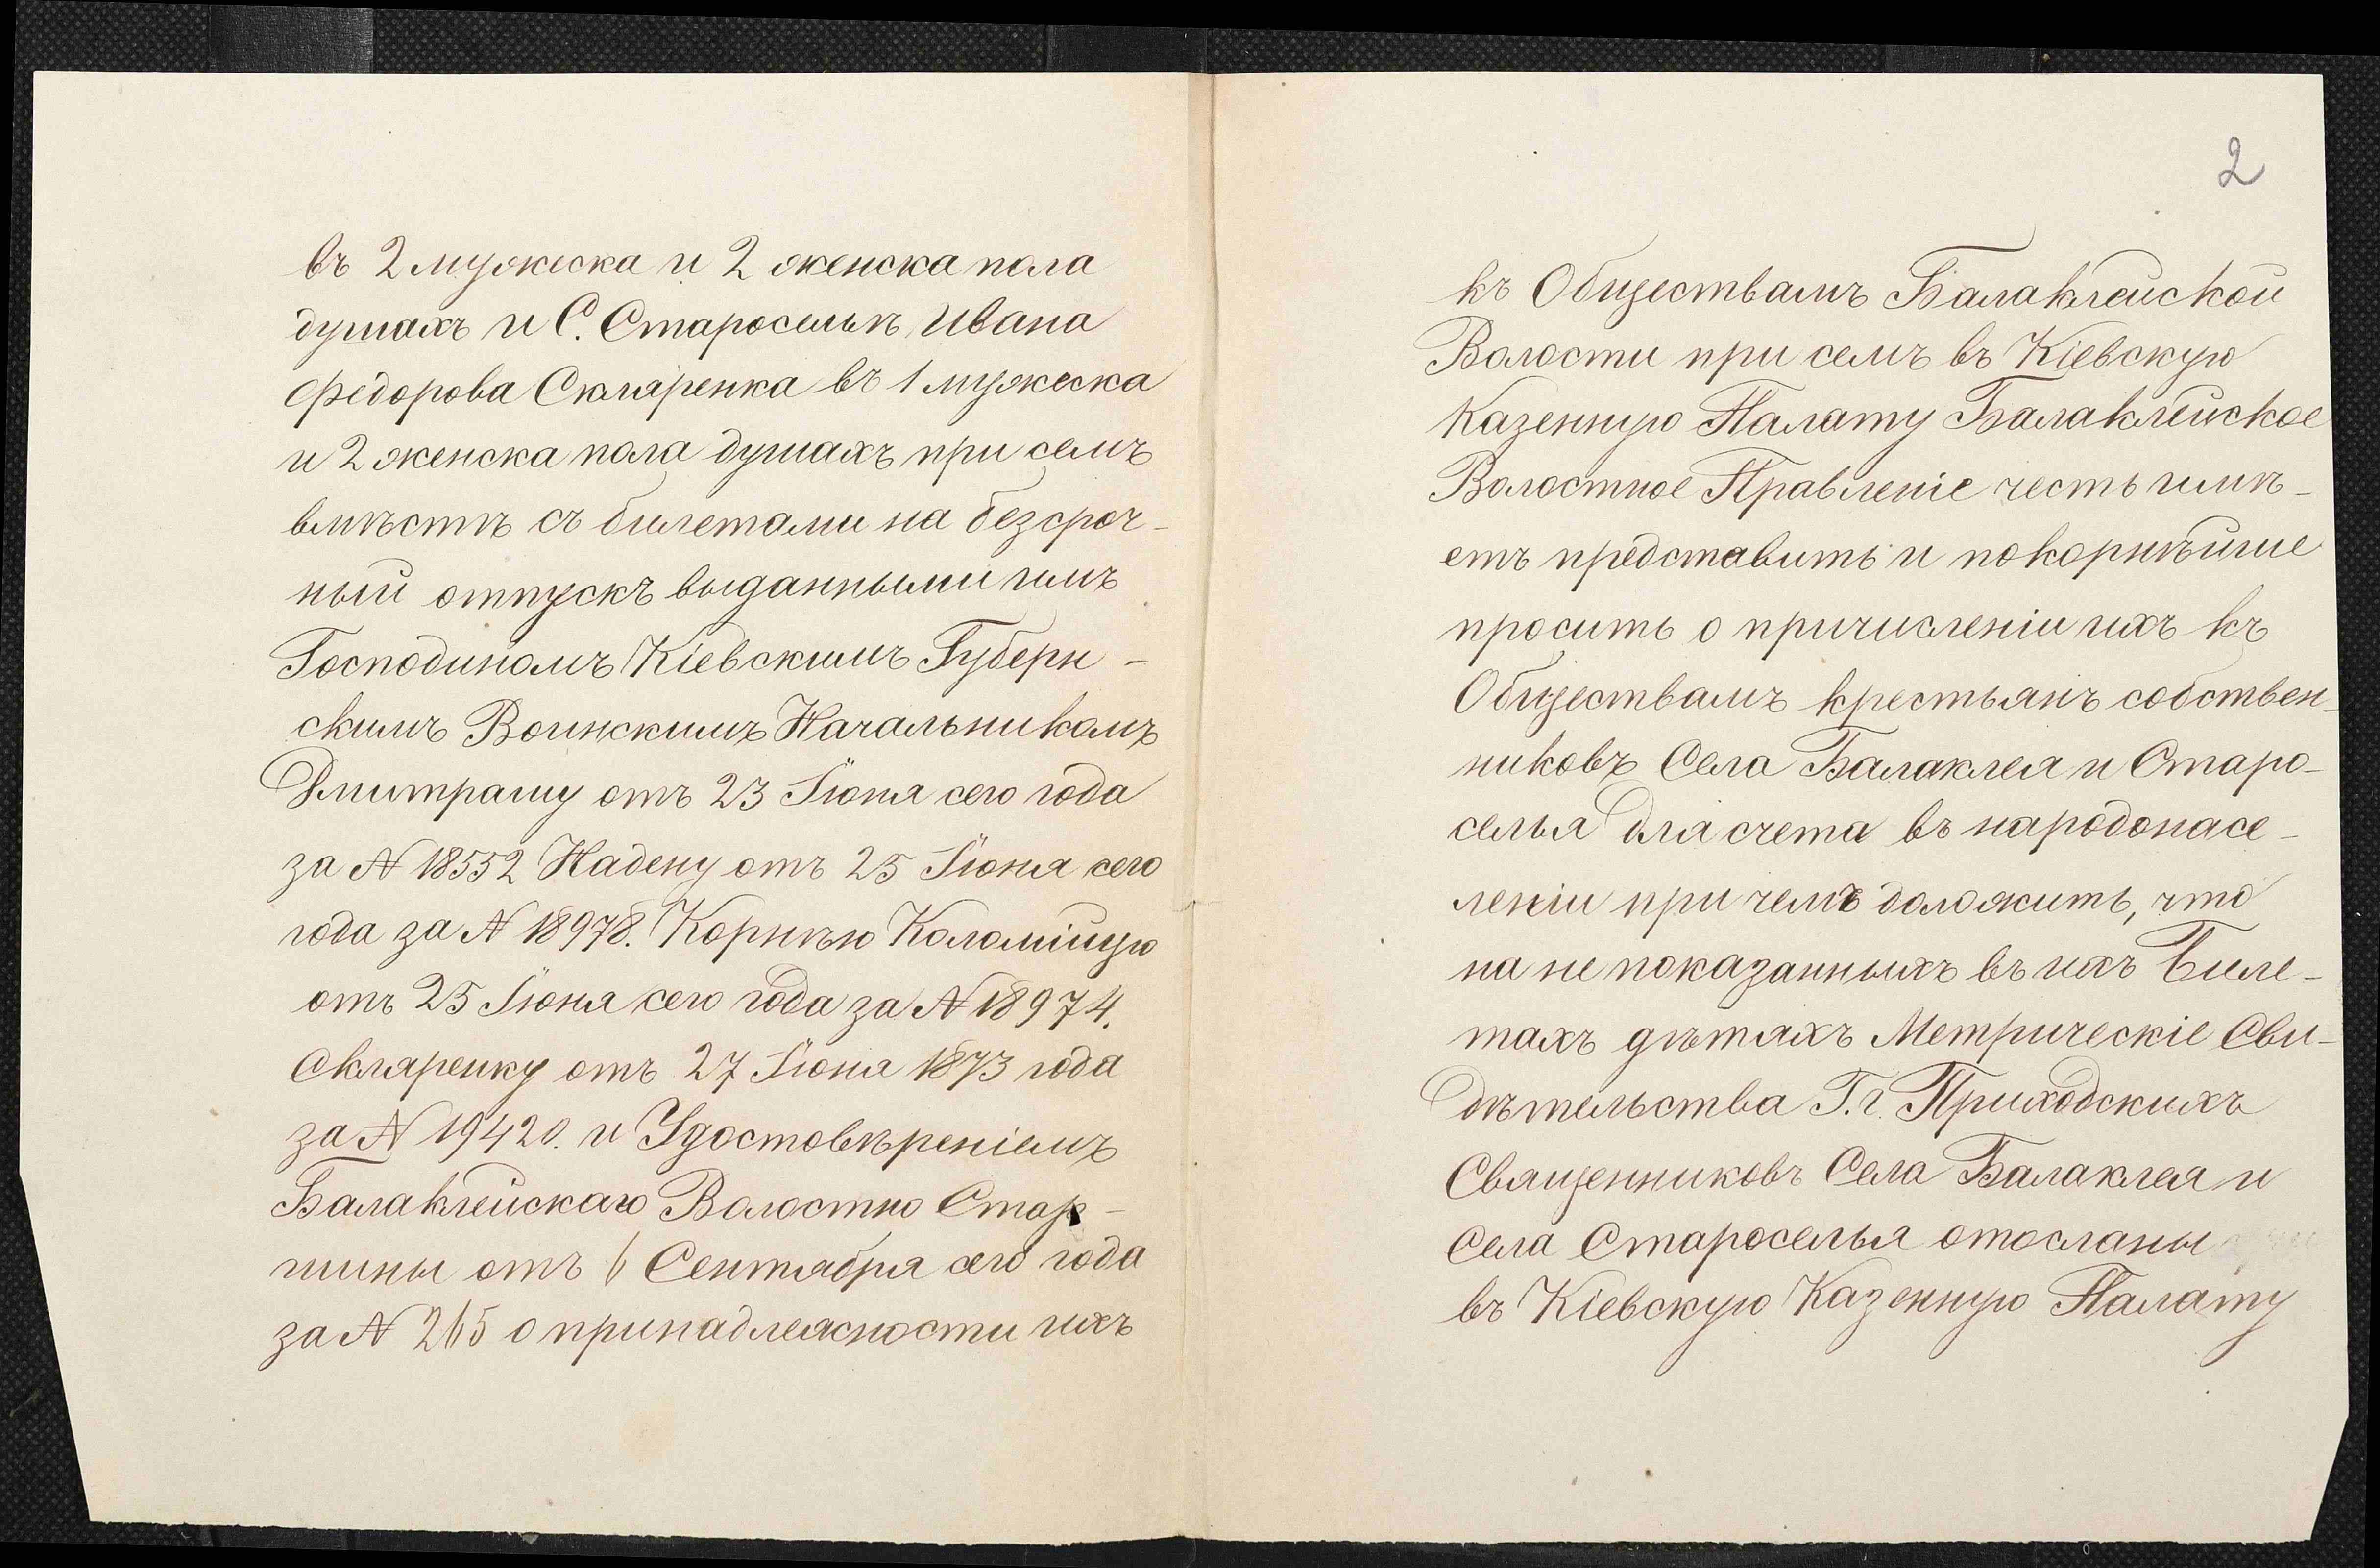 въ 2 мужеска и 2 женска пола
душахъ и С. Старосельѣ Ивана
Федорова Скляренка въ 1 мужеска
и 2 женска пола душахъ при семъ
вмѣстѣ съ билетами на безсроч-
ный отпускъ выданными имъ
Господиномъ Кіевскимъ Губерн-
скимъ Воинскимъ Начальникомъ
Дмитрашу отъ 23 Іюня сего года
за № 18552 Надену отъ 25 Іюня сего
года за № 18978. Корнѣю Коломійцю
отъ 25 Іюня сего года за № 18974.
Скляренку отъ 27 Іюня 1873 года
за № 19420. и Удостовѣреніемъ
Балаклейскаго Волостно Стар-
шины отъ 6 Сентября сего года
за № 265 о принадлежности ихъ
2
къ Обществамъ Балаклейской
Волости при семъ въ Кіевскую
Казенную Палату Балаклейское
Волостное Правленіе честь имѣ-
етъ представить и покорнѣйше
просить о причисленіи ихъ къ
Обществамъ крестьянъ собствен-
никовъ Села Балаклея и Старо-
селья для счета въ народонасе-
леніи при чемъ доложить, что
на не показанныхъ въ ихъ Биле-
тахъ дѣтяхъ Метрическіе Сви-
дѣтельства Г.г. Приходскихъ
Священниковъ Села Балаклея и
Села Староселья отосланы
въ Кіевскую Казенную Палату